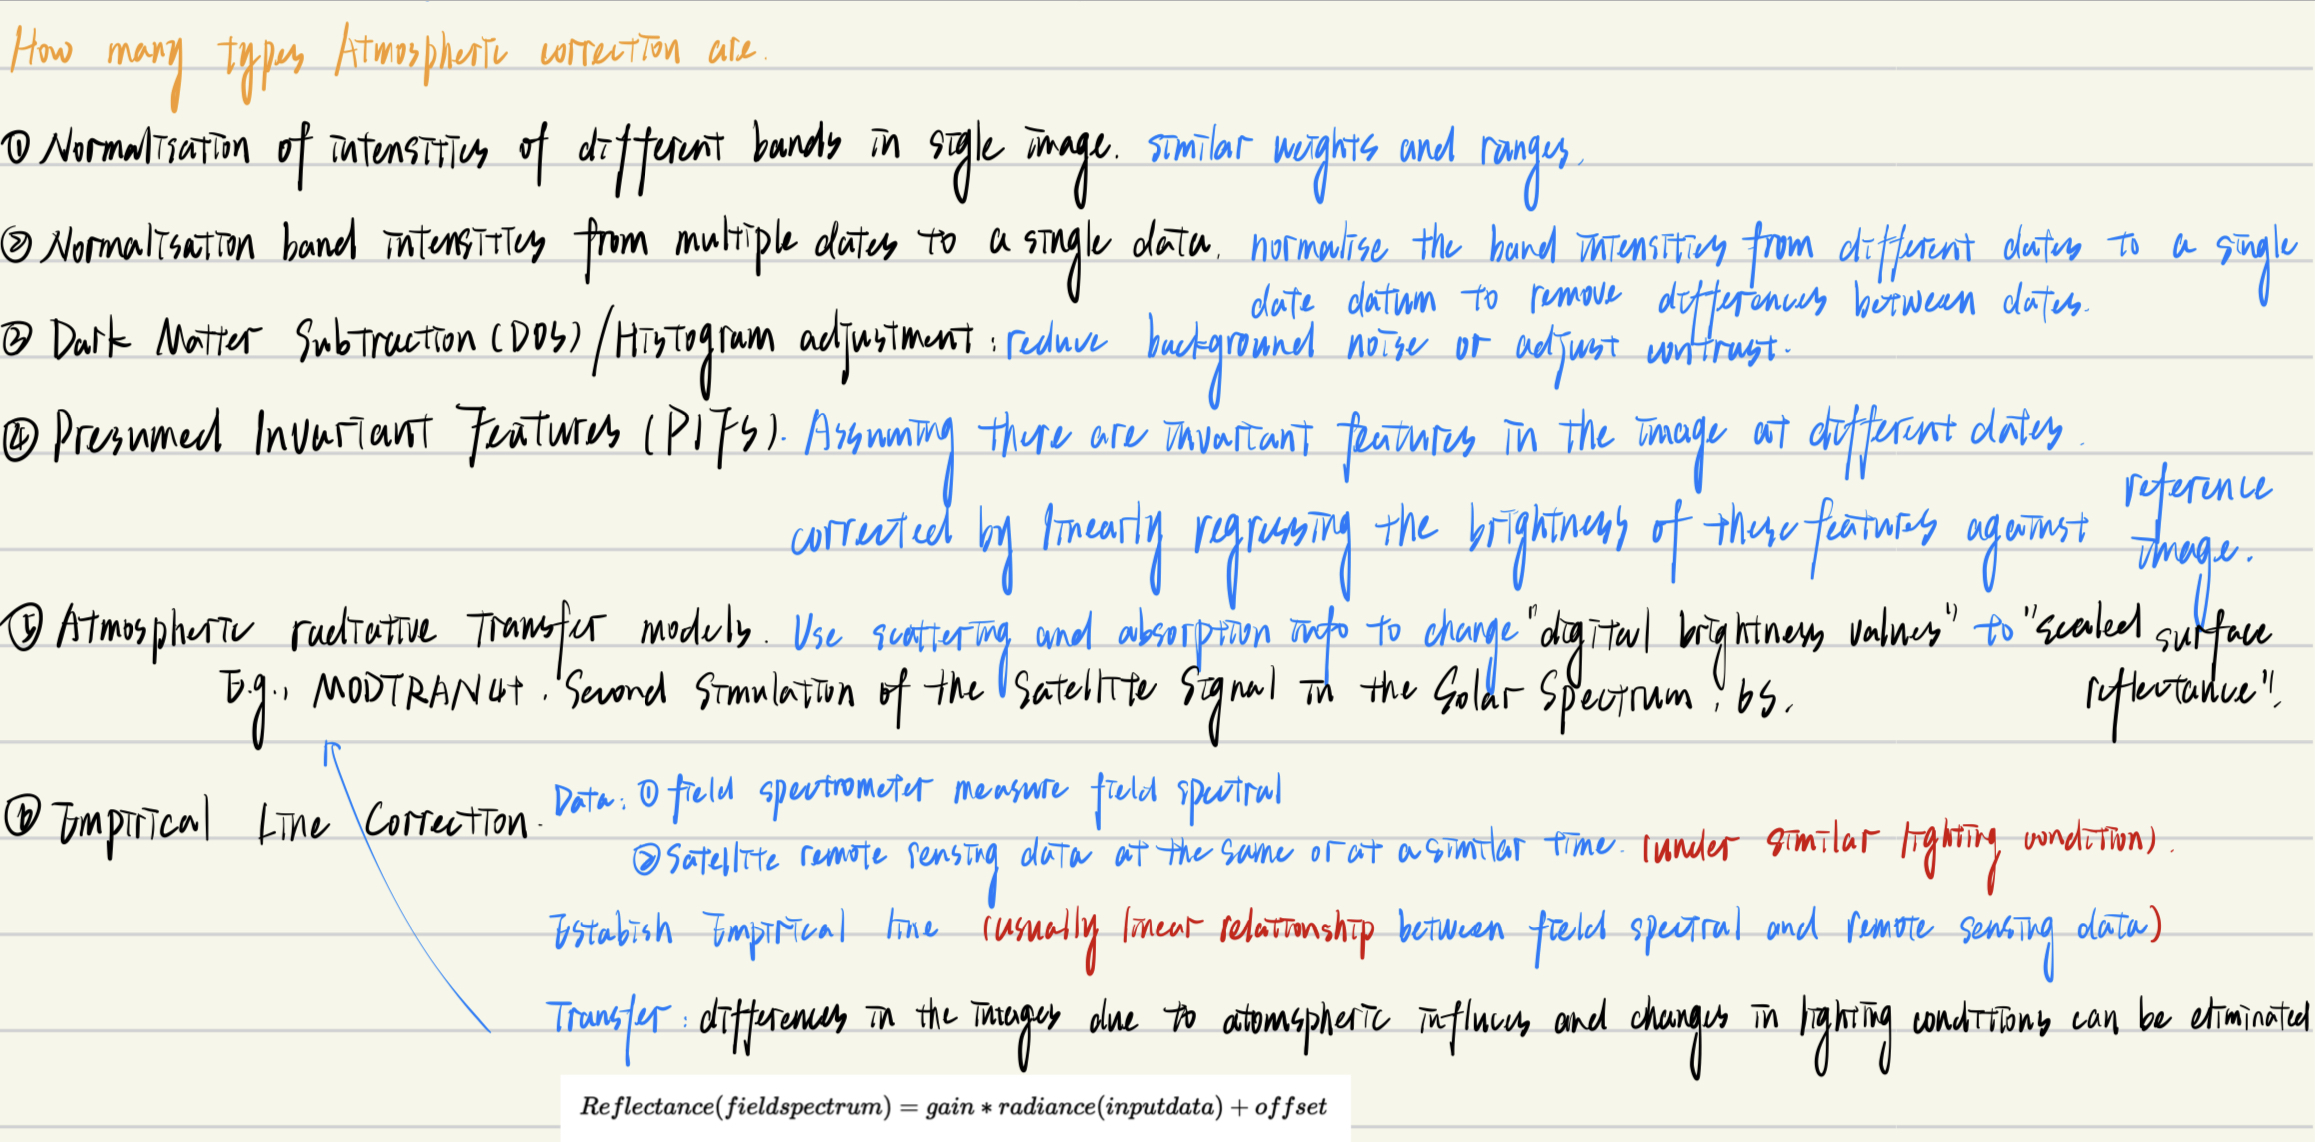 How many types Atmospheric correction are.
① Normalisation of intensities of different bands in sigle image. similar weights and ranges.
② Normalisation band intensities from multiple dates to a single data. normalise the band intensities from different dates to a single
date datum to remove differences between dates.
③ Dark Matter Subtraction (DOS) / Histogram adjustment : reduce background noise or adjust contrast.
④ Presumed Invariant Features (PIFs). Assuming there are invariant features in the image at different dates.
corrected by linearly regressing the brightness of these features against reference image.
⑤ Atmospheric radiative Transfer models. Use scattering and absorption info to change "digital brightness values" to "scaled surface
reflectance".
E.g., MODTRAN4+, Second Simulation of the Satellite Signal in the Solar Spectrum, 6S.
⑥ Empirical Line Correction.
Data: ① field spectrometer measure field spectral
② Satellite remote sensing data at the same or at a similar time. (under similar lighting condition).
Estabish Empirical line (usually linear relationship between field spectral and remote sensing data)
Transfer : differences in the images due to atomspheric influces and changes in lighting conditions can be eliminated
Reflectance(fieldspectrum) = gain * radiance(inputdata) + offset